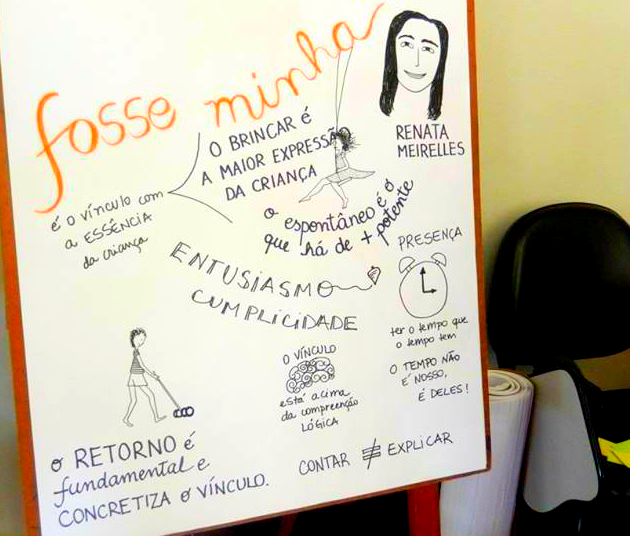 fosse minha
RENATA
MEIRELLES
O BRINCAR É
A MAIOR EXPRESSÃO
DA CRIANÇA
é o vínculo com
a ESSÊNCIA
da criança
o espontâneo é o
que há de + potente
ENTUSIASMO
CUMPLICIDADE
PRESENÇA
ter o tempo que
o tempo tem
O TEMPO NÃO
É NOSSO,
É DELES!
O VÍNCULO
está acima
da compreenção
LÓGICA
o RETORNO é
fundamental e
CONCRETIZA O VÍNCULO.
CONTAR ≠ EXPLICAR